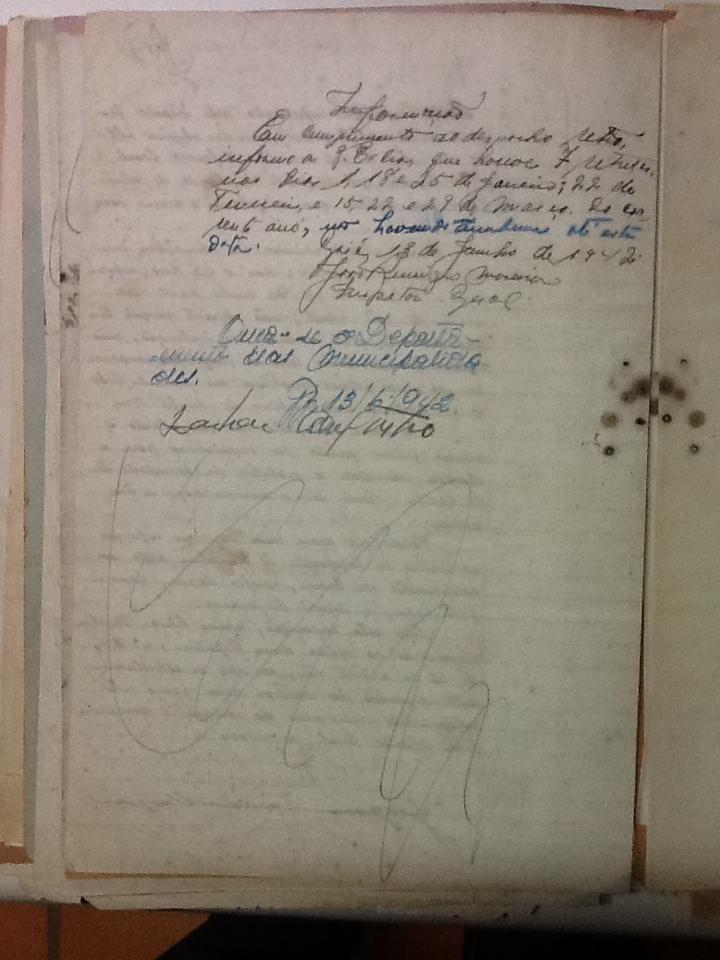 Informação
Em cumprimento ao despacho retro,
informo a V. Excia. que houve 7
nos dias 1, 18 e 25 de Janeiro; 22 de
Fevereiro, e 15, 22 e 29 de Março do cor-
rente ano, não havendo nenhuma até esta
data.
13 de Junho de 1942
João Remigio Moreira
Inspetor Geral
Ouça-se o Departa-
mento das Municipalida
des.
13/6/942